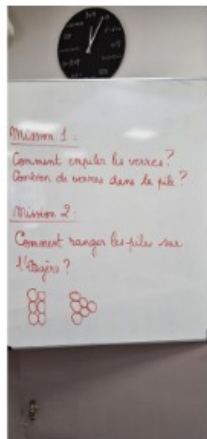 Mission 1 :
Comment empiler les verres ?
Combien de verres dans la pile ?
Mission 2 :
Comment ranger les piles sur
l'étagère ?